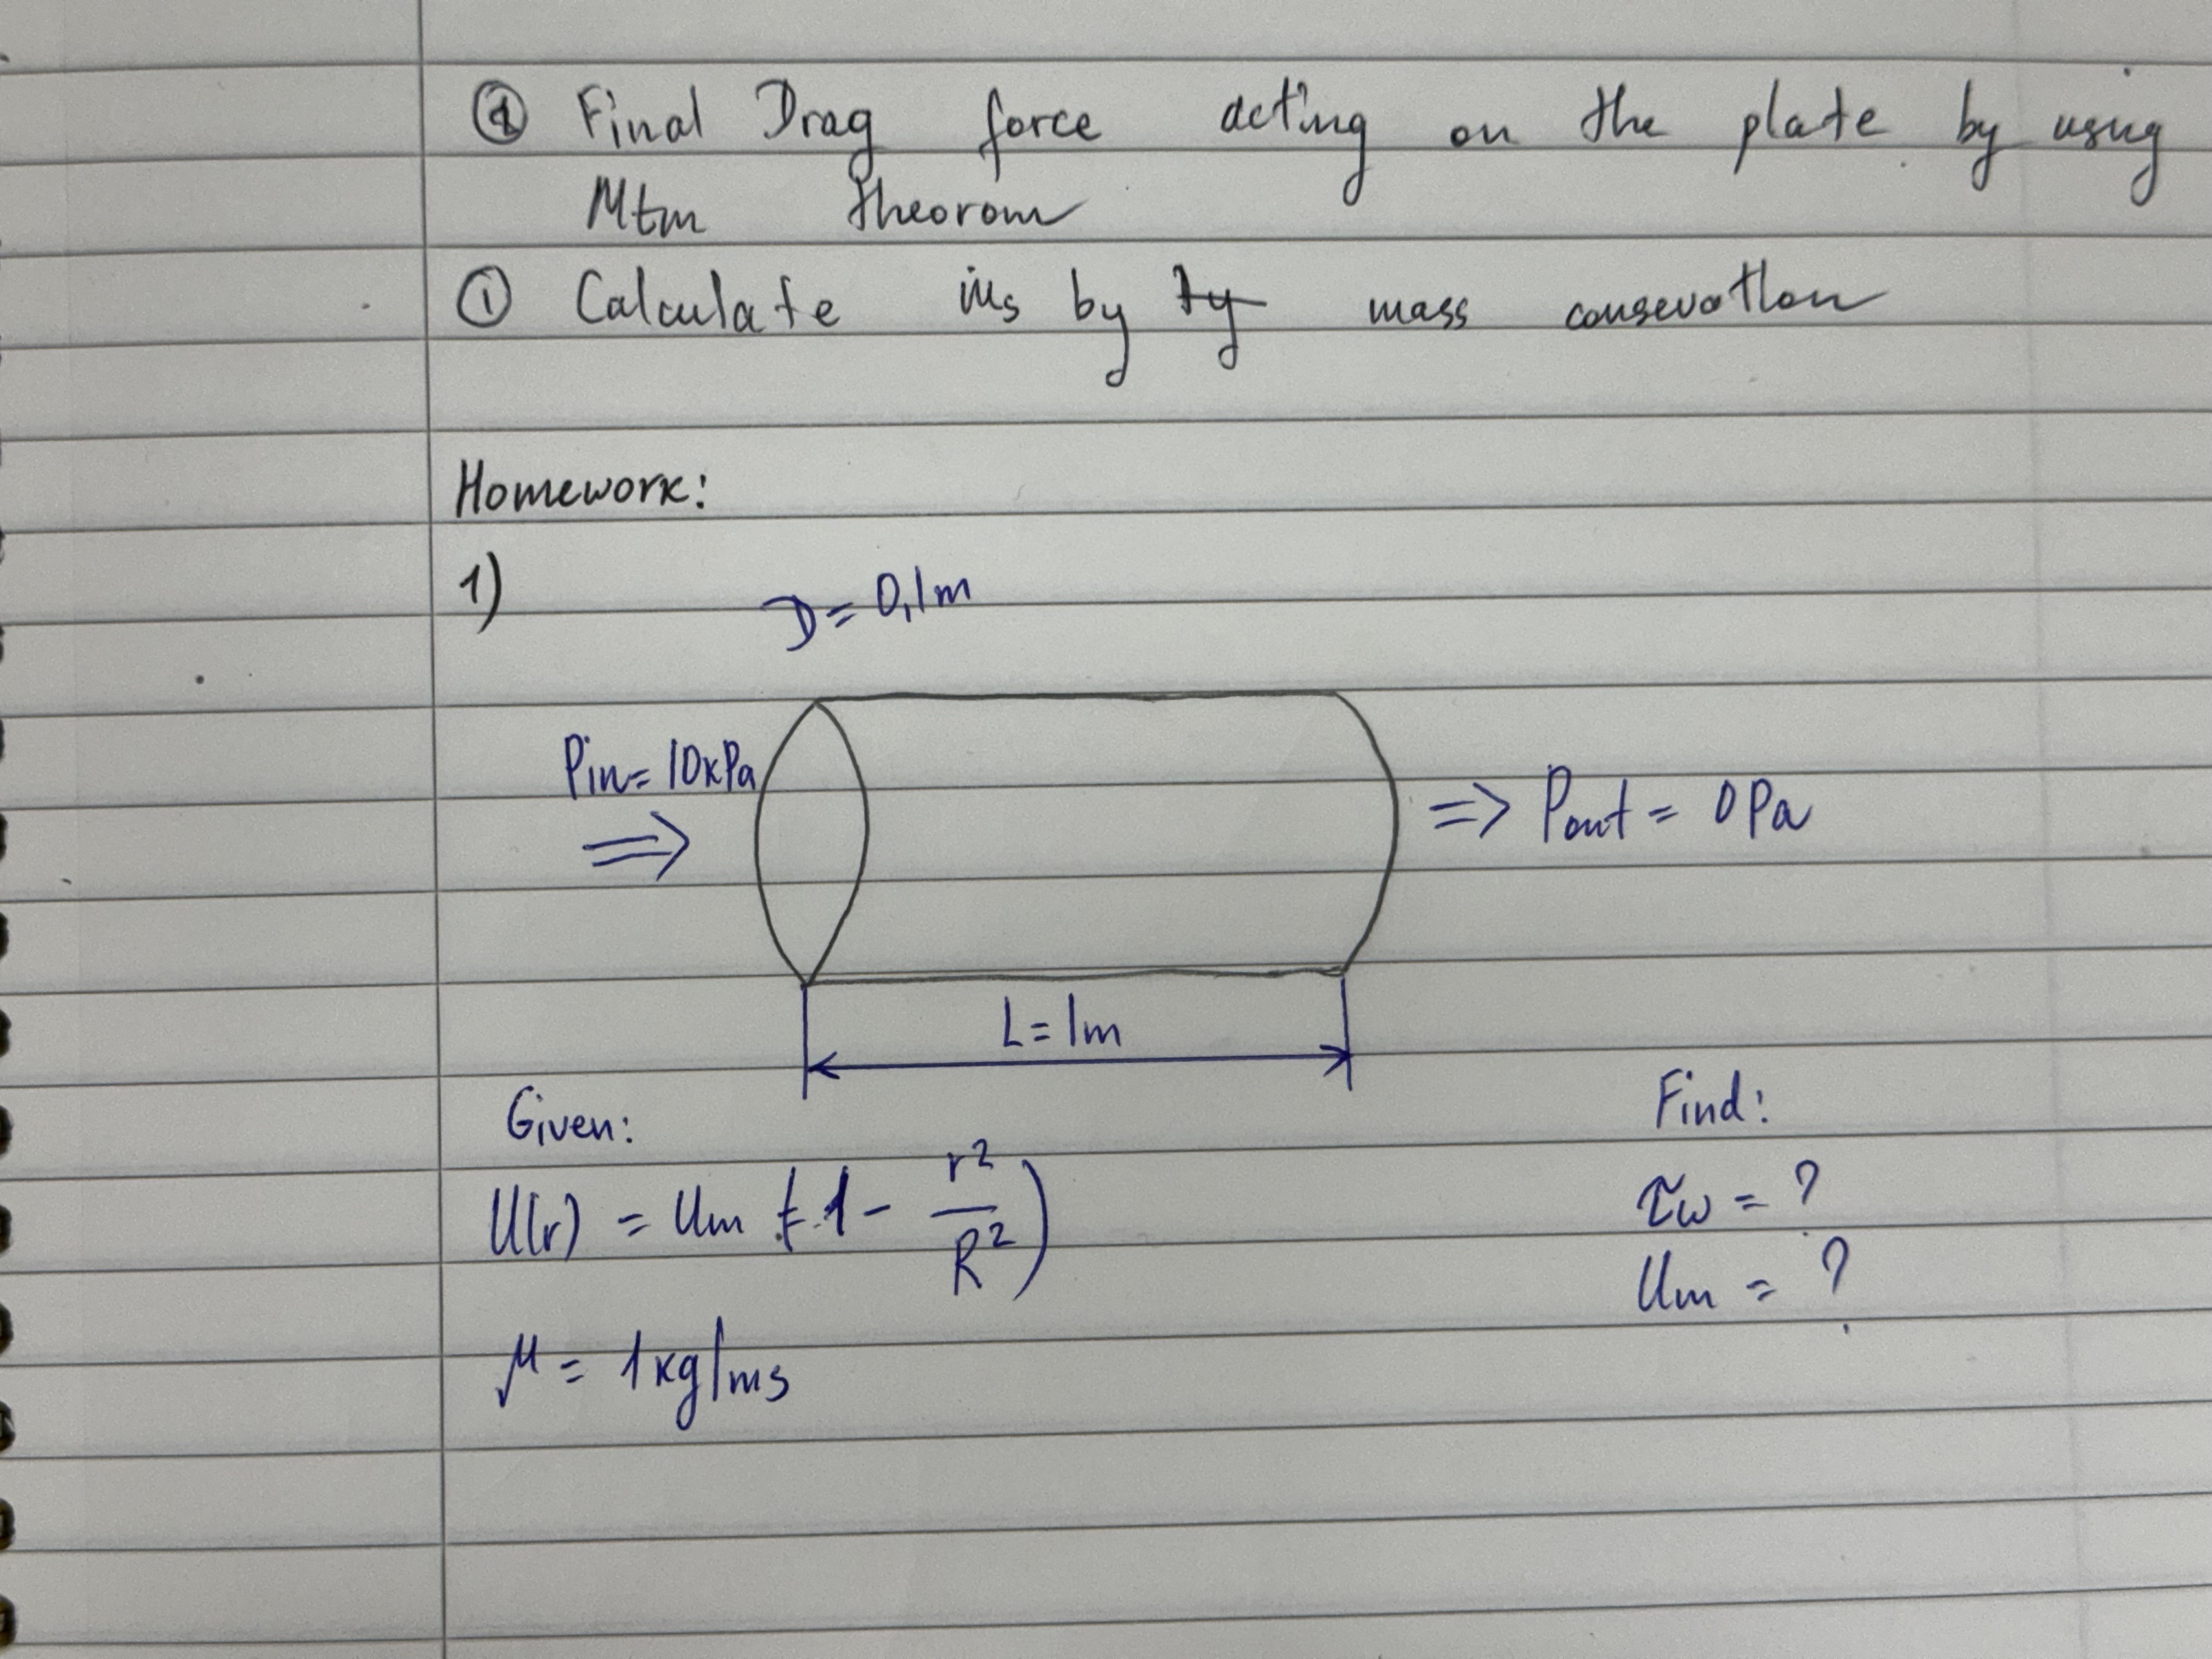 ② Final Drag force acting on the plate by using
Mtm theorom
① Calculate ṁs by mass consevation
Homework:
1)
D = 0,1m
Pin = 10kPa
⇒
=> Pout = 0 Pa
L = 1m
Given:
Find:
U(r) = Um (1 - r²/R²)
τw = ?
Um = ?
μ = 1kg/ms